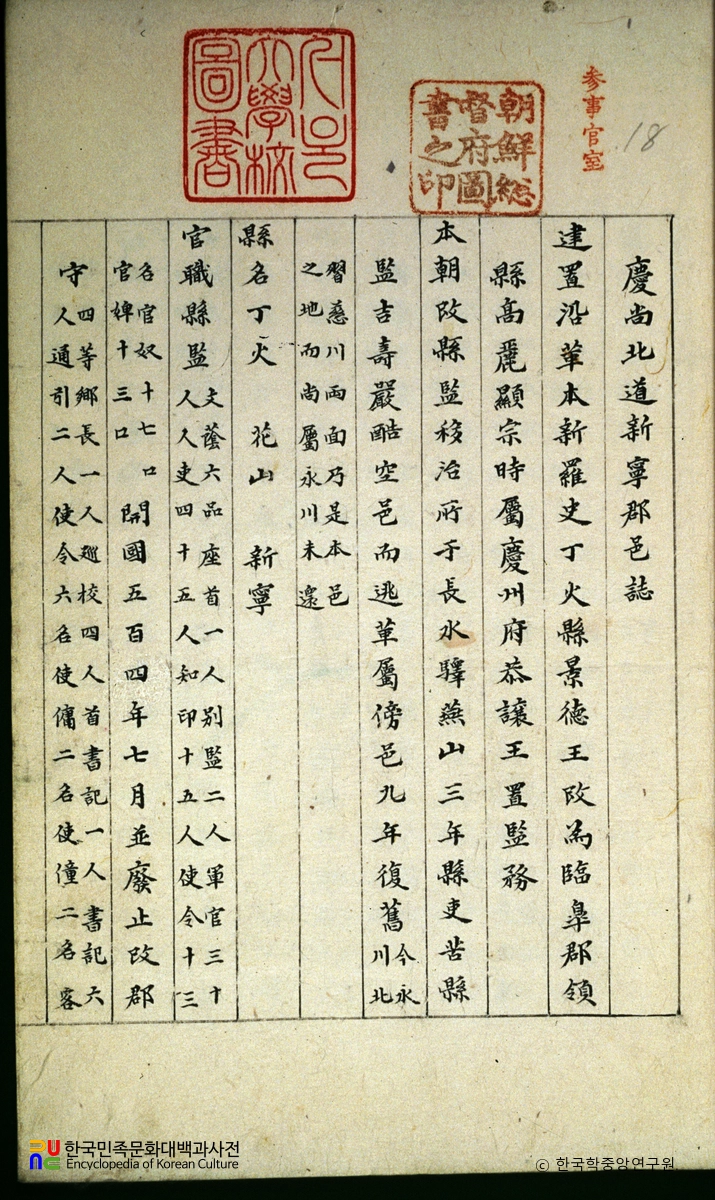 参事官室
18
朝鮮總
督府圖
書之印
大學校
圖書
慶尚北道新寧郡邑誌
建置沿革本新羅史丁火縣景德王改為臨皐郡領
縣高麗顯宗時屬慶州府恭讓王置監務
本朝改縣監移治所于長水驛燕山三年縣吏苦縣
監吉壽嚴酷空邑而逃革屬傍邑九年復舊今永川北
習慈川兩面乃是本邑
之地而尚屬永川未還
縣名丁火 花山 新寧
官職縣監文蔭六品座首一人別監二人軍官三十
人人吏四十五人知印十五人使令十三
名官奴十七口
官婢十三口開國五百四年七月並廢止改郡
守四等鄉長一人巡校四人首書記一人書記六
人通引二人使令六名使傭二名使僮二名客
한국민족문화대백과사전
Encyclopedia of Korean Culture
© 한국학중앙연구원